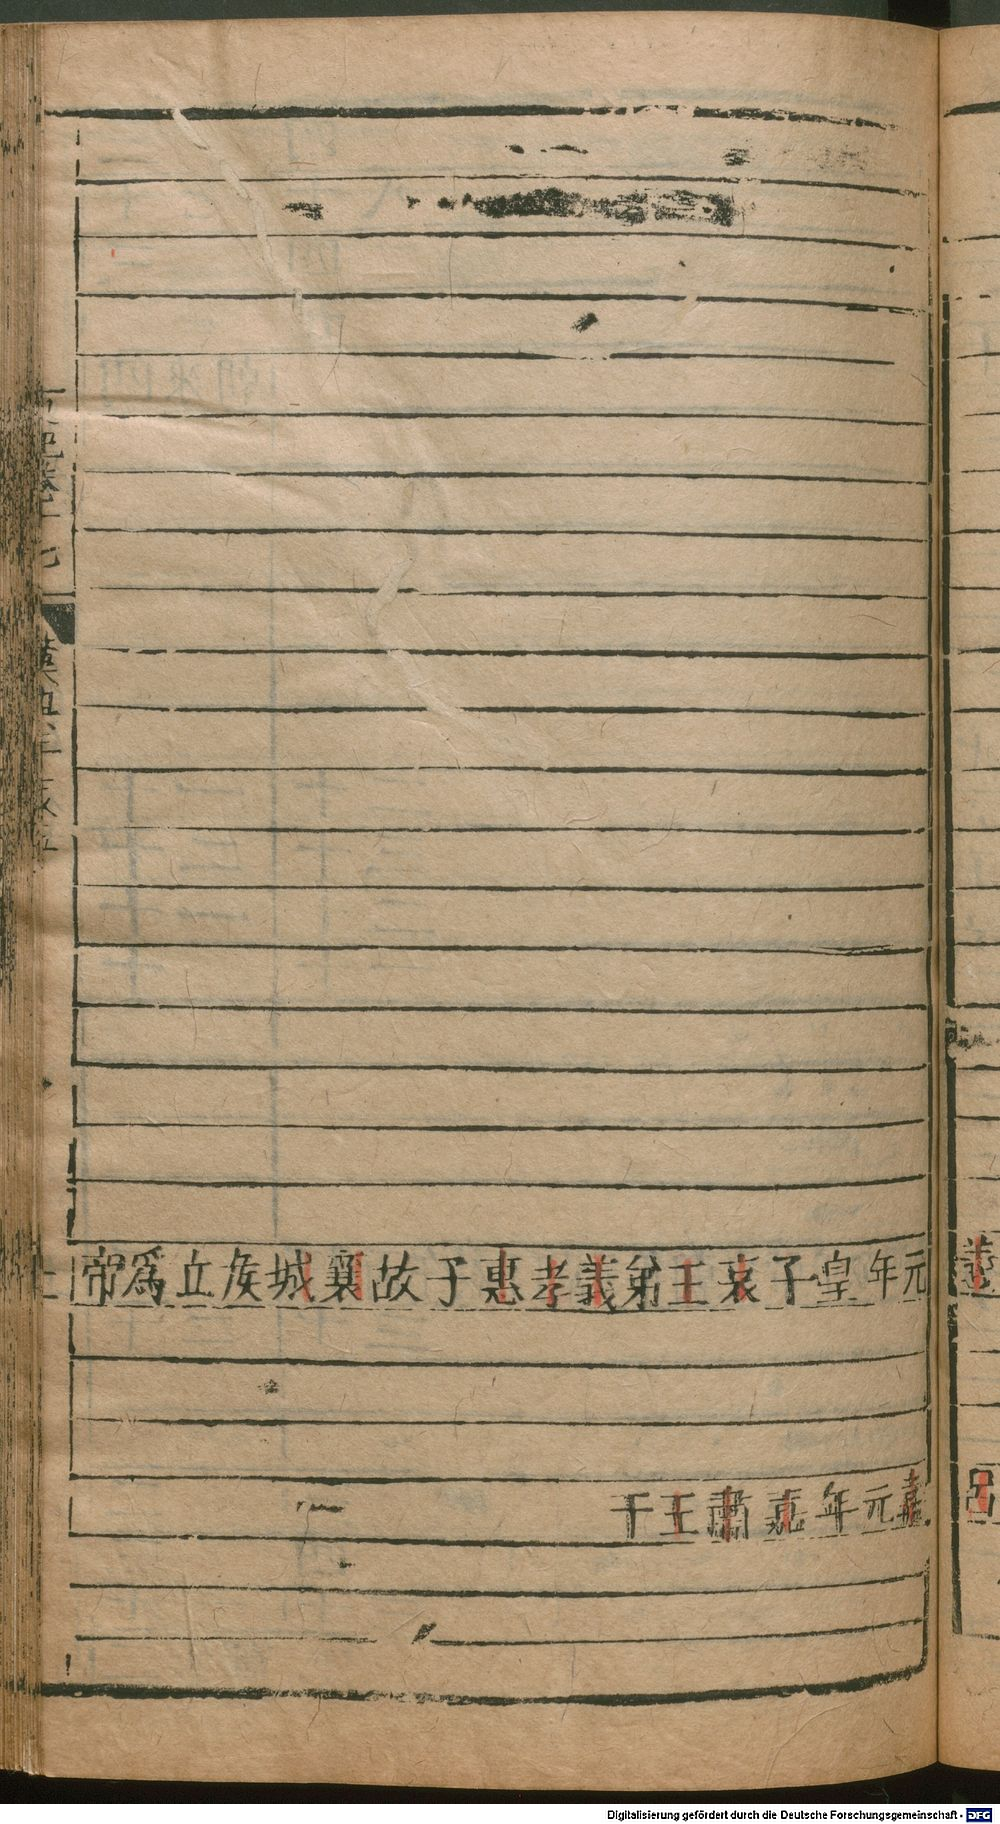 義
呂
元年皇子哀王弟義孝惠子故襄城侯立爲帝
嘉元年嘉肅王子
Digitalisierung gefördert durch die Deutsche Forschungsgemeinschaft - DFG